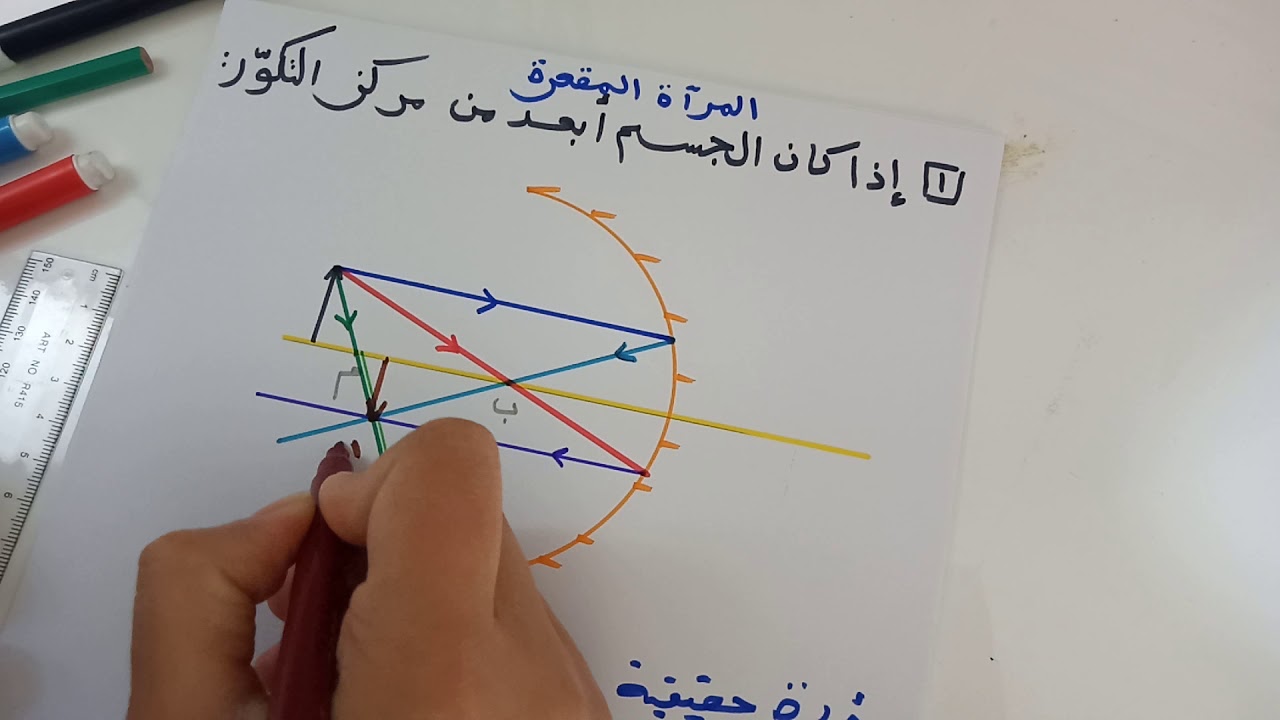 المرآة المقعرة
١ إذا كان الجسم أبعد من مركز التكوّر:
م
ب
حقيقية
cm
1
2
3
4
5
6
150
140
130
120
ART NO R415